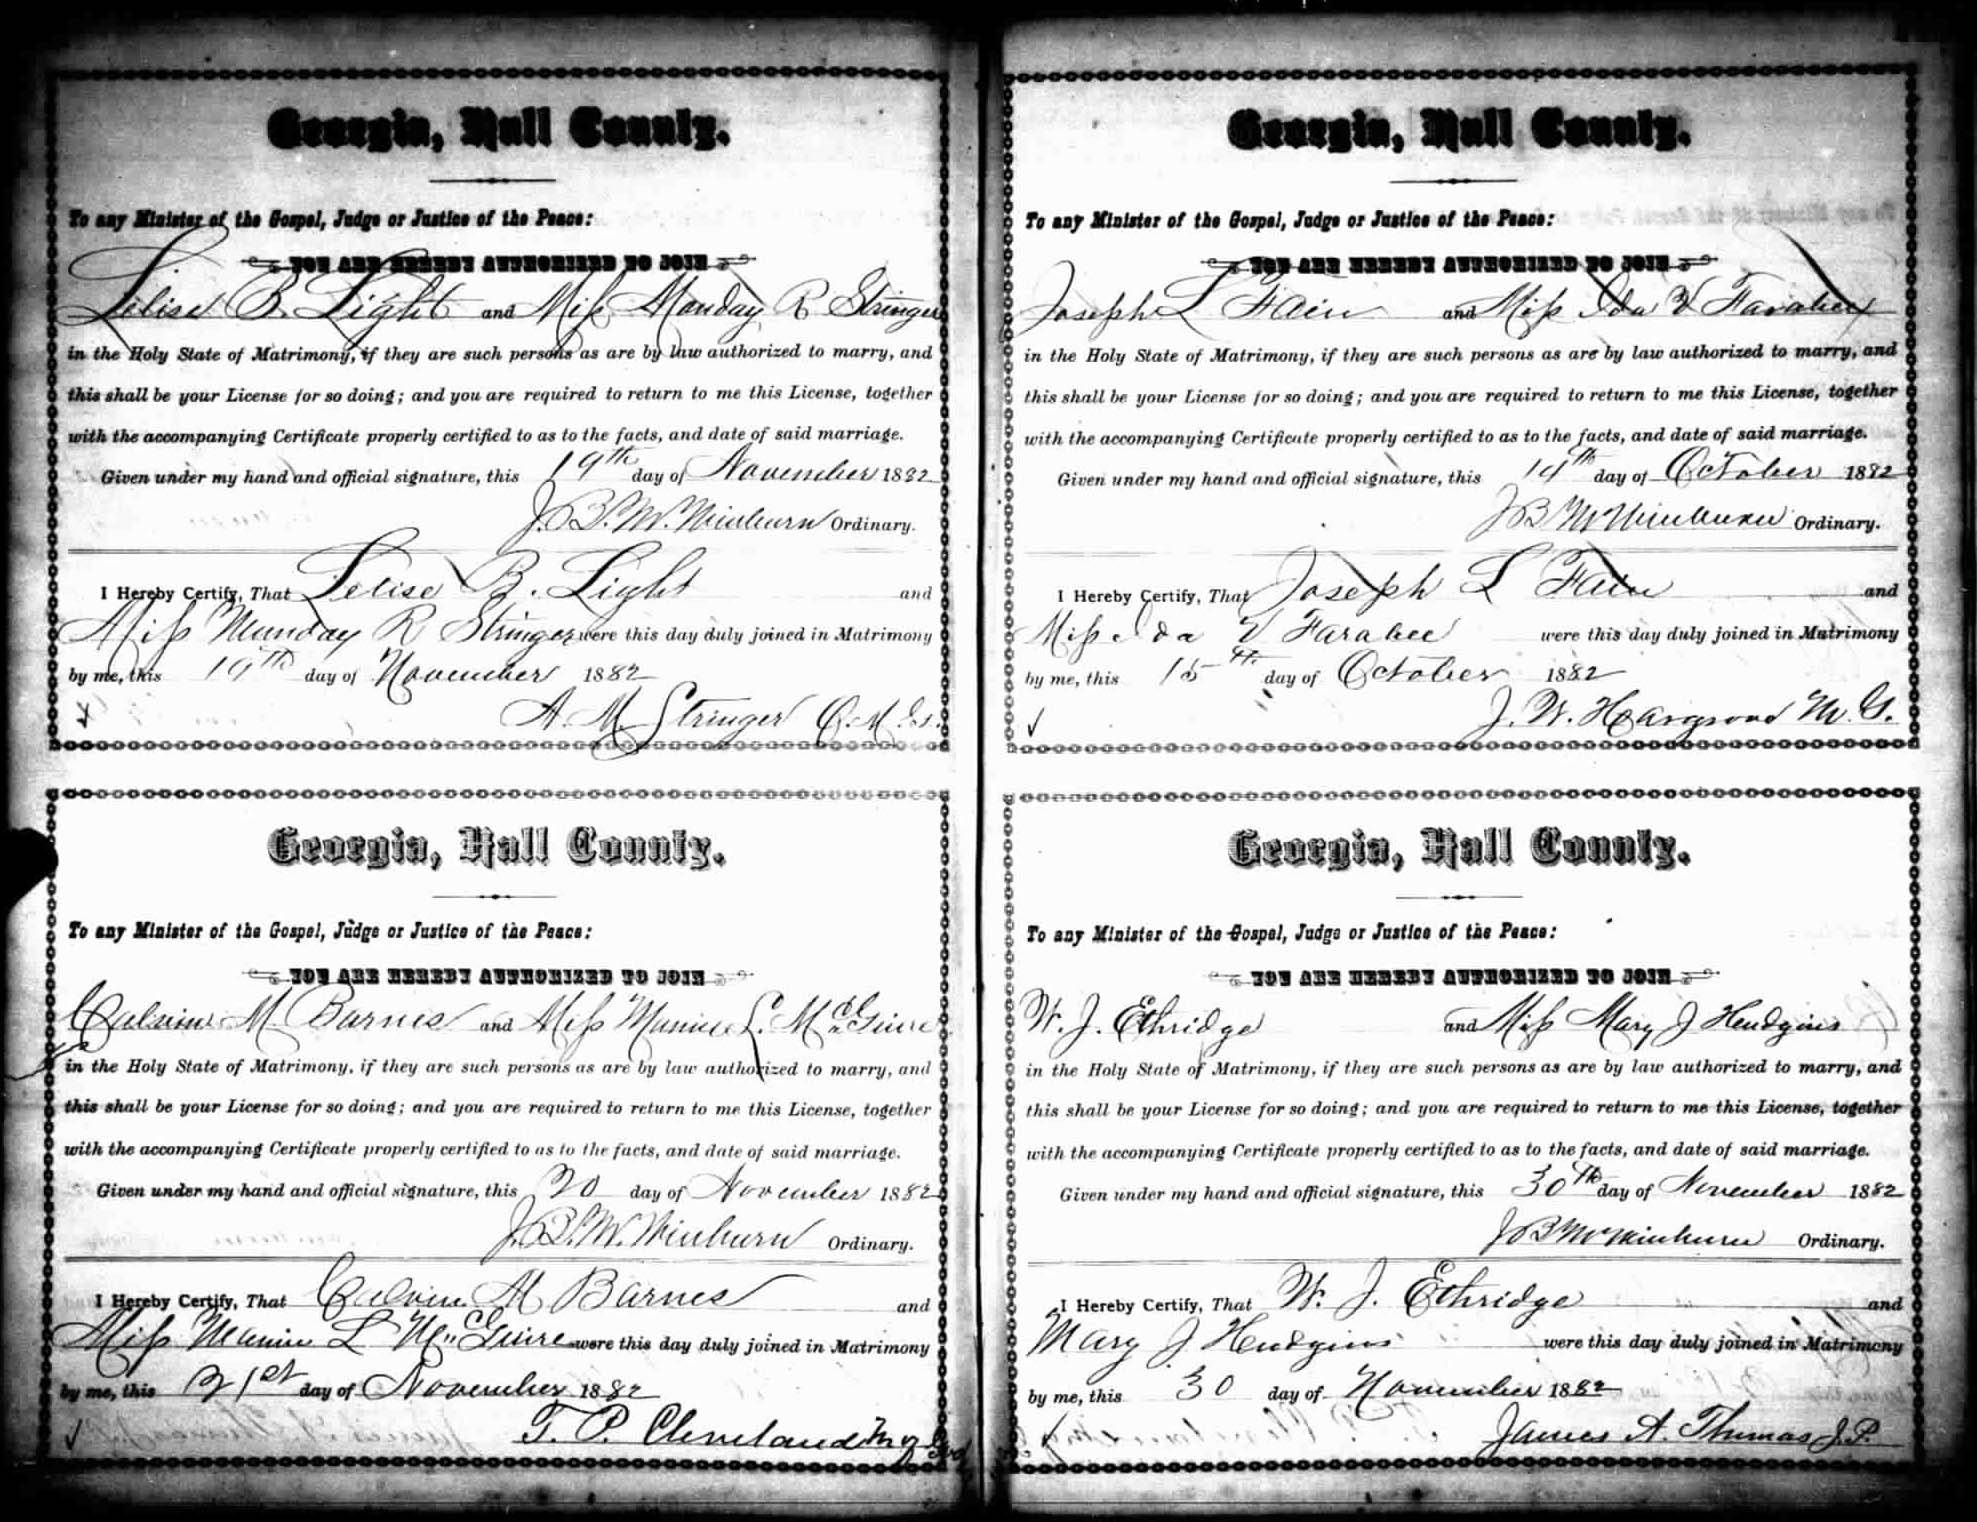 Georgia, Hall County.
To any Minister of the Gospel, Judge or Justice of the Peace:
YOU ARE HEREBY AUTHORIZED TO JOIN
B. Light and Miss Monday R Stringer
in the Holy State of Matrimony, if they are such persons as are by law authorized to marry, and
this shall be your License for so doing; and you are required to return to me this License, together
with the accompanying Certificate properly certified to as to the facts, and date of said marriage.
Given under my hand and official signature, this 19th day of November 1882
J. B. M. Winburn Ordinary.
I Hereby Certify, That B. Light and
Miss Munday R Stringer were this day duly joined in Matrimony
by me, this 19th day of November 1882
A. M. Stringer
Georgia, Hall County.
To any Minister of the Gospel, Judge or Justice of the Peace:
YOU ARE HEREBY AUTHORIZED TO JOIN
Calvin M. Barnes and Miss L. McGuire
in the Holy State of Matrimony, if they are such persons as are by law authorized to marry, and
this shall be your License for so doing; and you are required to return to me this License, together
with the accompanying Certificate properly certified to as to the facts, and date of said marriage.
Given under my hand and official signature, this 20 day of November 1882
J. B. M. Winburn Ordinary.
I Hereby Certify, That Calvin M Barnes and
Miss L McGuire were this day duly joined in Matrimony
by me, this 21st day of November 1882
T. P. Cleveland
Georgia, Hall County.
To any Minister of the Gospel, Judge or Justice of the Peace:
YOU ARE HEREBY AUTHORIZED TO JOIN
Joseph L Fain and Miss Ida V Farabee
in the Holy State of Matrimony, if they are such persons as are by law authorized to marry, and
this shall be your License for so doing; and you are required to return to me this License, together
with the accompanying Certificate properly certified to as to the facts, and date of said marriage.
Given under my hand and official signature, this 14th day of October 1882
J B M Winburn Ordinary.
I Hereby Certify, That Joseph L Fain and
Miss Ida V Farabee were this day duly joined in Matrimony
by me, this 15th day of October 1882
J. W. M. G.
Georgia, Hall County.
To any Minister of the Gospel, Judge or Justice of the Peace:
YOU ARE HEREBY AUTHORIZED TO JOIN
W. J. Ethridge and Miss Mary J Hudgins
in the Holy State of Matrimony, if they are such persons as are by law authorized to marry, and
this shall be your License for so doing; and you are required to return to me this License, together
with the accompanying Certificate properly certified to as to the facts, and date of said marriage.
Given under my hand and official signature, this 30th day of November 1882
J B M Winburn Ordinary.
I Hereby Certify, That W. J. Ethridge and
Mary J. Hudgins were this day duly joined in Matrimony
by me, this 30 day of November 1882
James A. Thomas J. P.